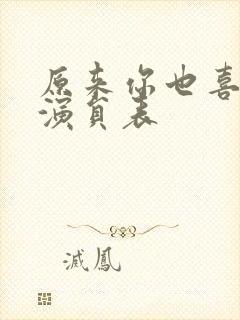 原来你也喜
演员表
滅鳳